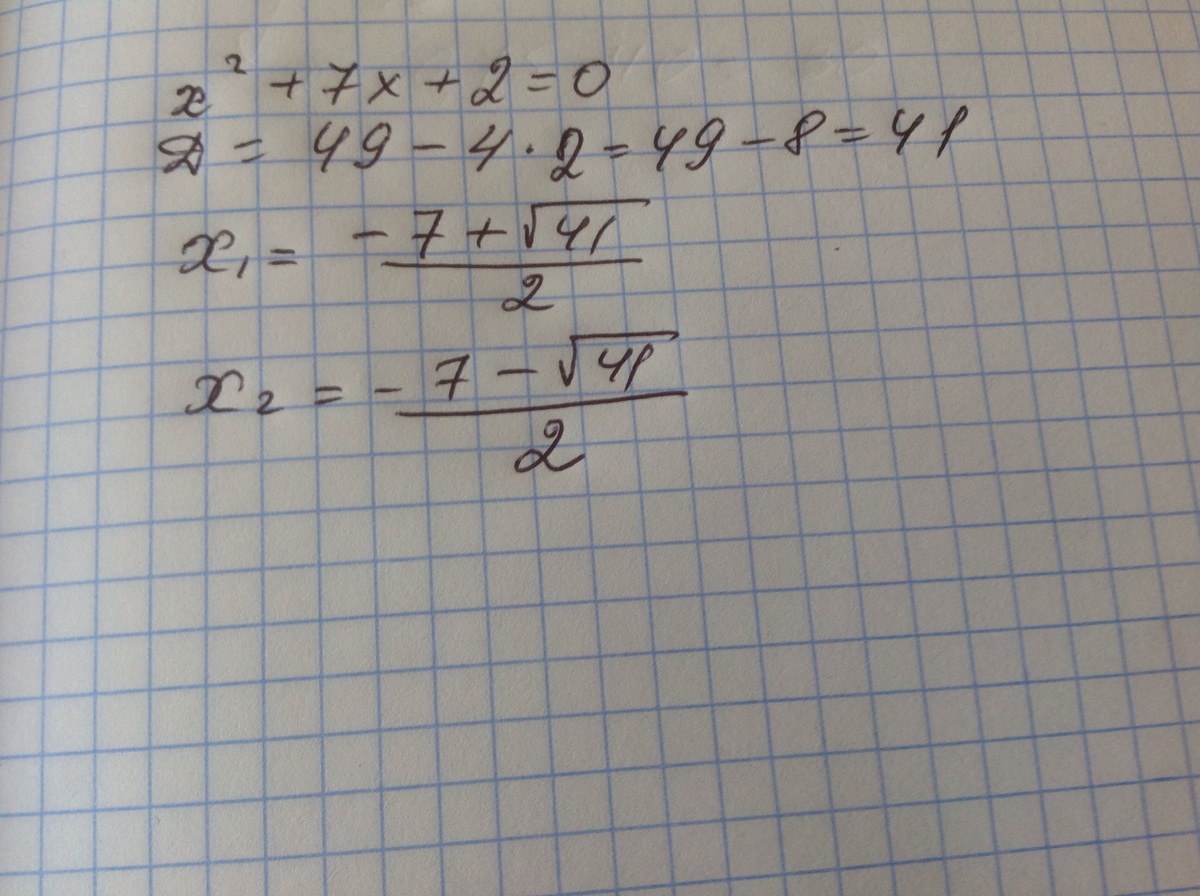 x² + 7x + 2 = 0
D = 49 - 4 · 2 = 49 - 8 = 41
x₁ = (-7 + √41) / 2
x₂ = (-7 - √41) / 2